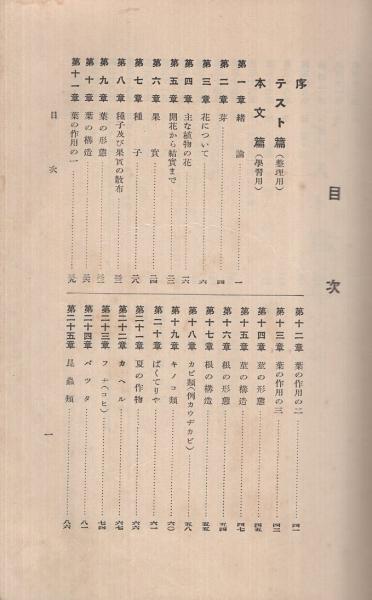 目次
序
テスト篇（整理用）
本文篇（學習用）
第一章 緒論 一
第二章 芽 四
第三章 花について 六
第四章 主な植物の花 一六
第五章 開花から結實まで 二二
第六章 果實 二四
第七章 種子 二八
第八章 種子及び果實の散布
第九章 葉の形態
第十章 葉の構造
第十一章 葉の作用の一
第十二章 葉の作用の二 四一
第十三章 葉の作用の三 四三
第十四章 莖の形態 四五
第十五章 莖の構造 四七
第十六章 根の形態 五四
第十七章 根の構造 五五
第十八章 カビ類（例カウヂカビ） 五八
第十九章 キノコ類 六〇
第二十章 ばくてりや 六一
第二十一章 夏の作物 六六
第二十二章 カヘル 六七
第二十三章 フナ（コヒ） 七四
第二十四章 バツタ 八一
第二十五章 昆蟲類 八六
目次
一